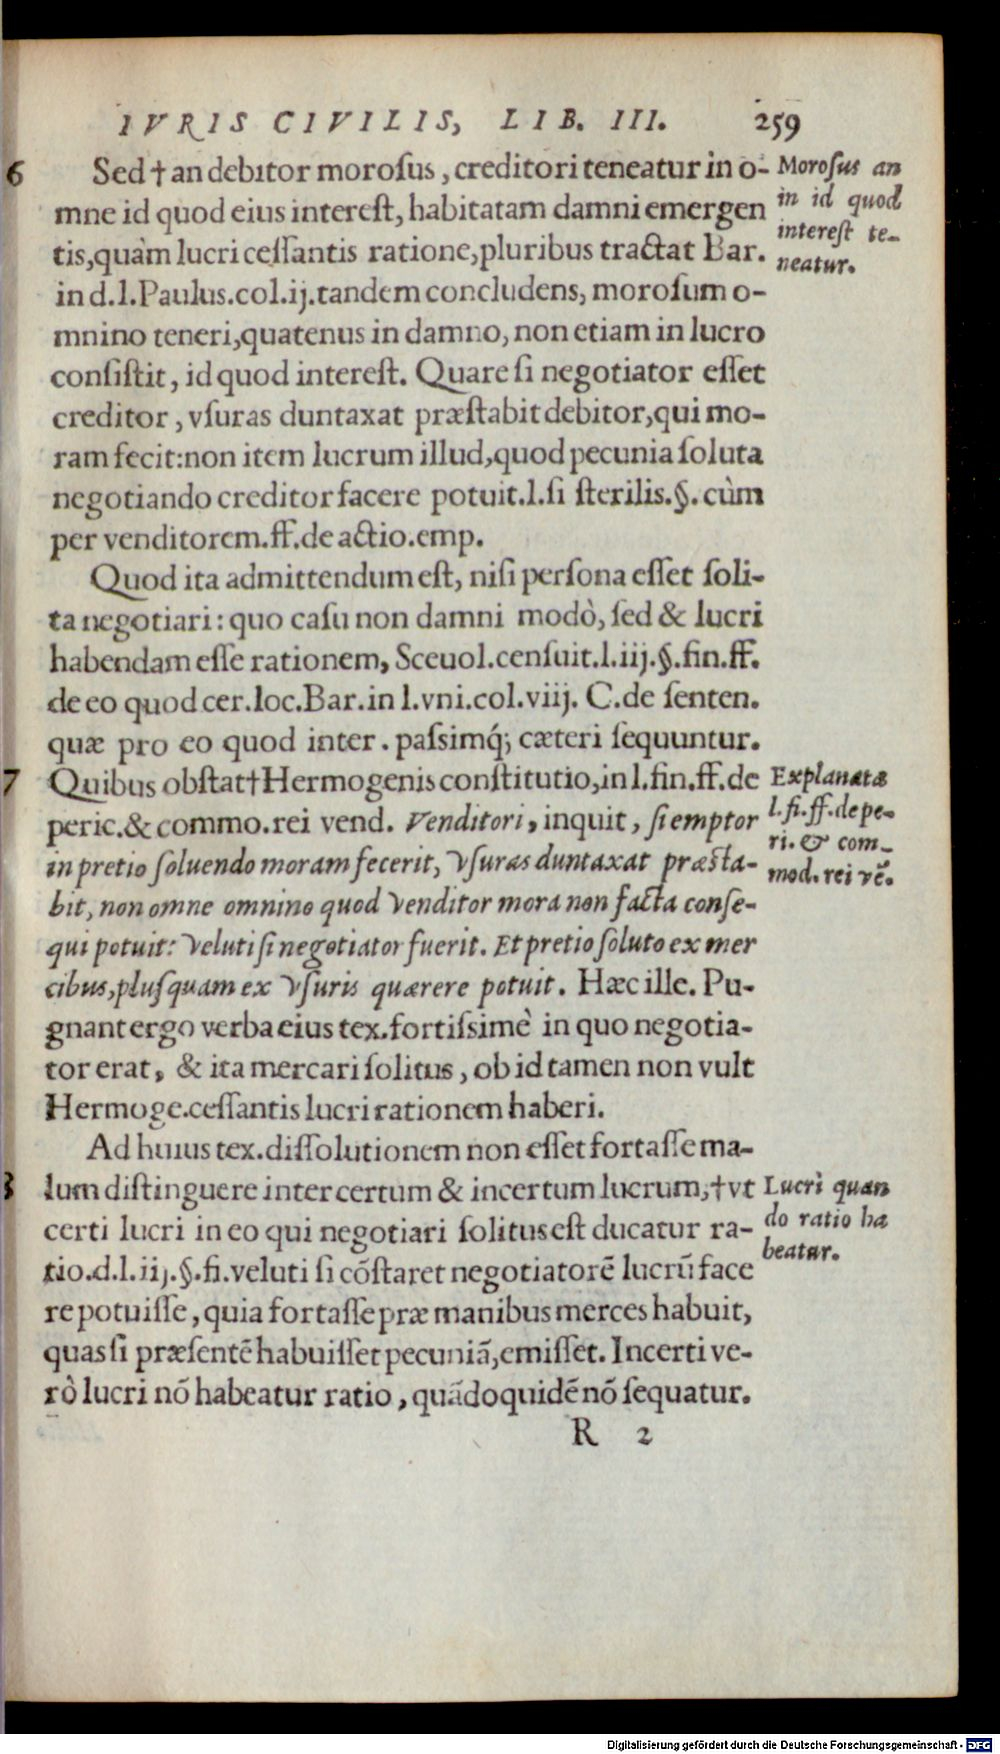 IVRIS CIVILIS, LIB. III. 259
6 Sed † an debitor moroſus, creditori teneatur in o-
mne id quod eius intereſt, habitatam damni emergen
tis, quàm lucri ceſſantis ratione, pluribus tractat Bar.
in d.l.Paulus.col.ij.tandem concludens, moroſum o-
mnino teneri, quatenus in damno, non etiam in lucro
conſiſtit, id quod intereſt. Quare ſi negotiator eſſet
creditor, vſuras duntaxat præſtabit debitor, qui mo-
ram fecit: non item lucrum illud, quod pecunia ſoluta
negotiando creditor facere potuit.l.ſi ſterilis.§.cùm
per venditorem.ff.de actio.emp.
Moroſus an
in id quod
intereſt te-
neatur.
Quod ita admittendum eſt, niſi perſona eſſet ſoli-
ta negotiari: quo caſu non damni modò, ſed & lucri
habendam eſſe rationem, Sceuol.cenſuit.l.iij.§.fin.ff.
de eo quod cer.loc.Bar.in l.vni.col.viij. C.de ſenten.
quæ pro eo quod inter. paſsimq́; cæteri ſequuntur.
7 Quibus obſtat † Hermogenis conſtitutio, in l.fin.ff.de
peric.& commo.rei vend. Venditori, inquit, ſi emptor
in pretio ſoluendo moram fecerit, vſuras duntaxat præſta-
bit, non omne omnino quod venditor mora non facta conſe-
qui potuit: veluti ſi negotiator fuerit. Et pretio ſoluto ex mer
cibus, pluſquam ex vſuris quærere potuit. Hæc ille. Pu-
gnant ergo verba eius tex.fortiſsimè in quo negotia-
tor erat, & ita mercari ſolitus, ob id tamen non vult
Hermoge.ceſſantis lucri rationem haberi.
Explanata
l.fi.ff.de pe-
ri. & com-
mod. rei vẽ.
Ad huius tex.diſſolutionem non eſſet fortaſſe ma-
8 lum diſtinguere inter certum & incertum lucrum, † vt
certi lucri in eo qui negotiari ſolitus eſt ducatur ra-
tio.d.l.iij.§.fi.veluti ſi cõſtaret negotiatorẽ lucrũ face
re potuiſſe, quia fortaſſe præ manibus merces habuit,
quas ſi præſentẽ habuiſſet pecuniã, emiſſet. Incerti ve-
rò lucri nõ habeatur ratio, quãdoquidẽ nõ ſequatur.
Lucri quan
do ratio ha
beatur.
R 2
Digitalisierung gefördert durch die Deutsche Forschungsgemeinschaft - DFG